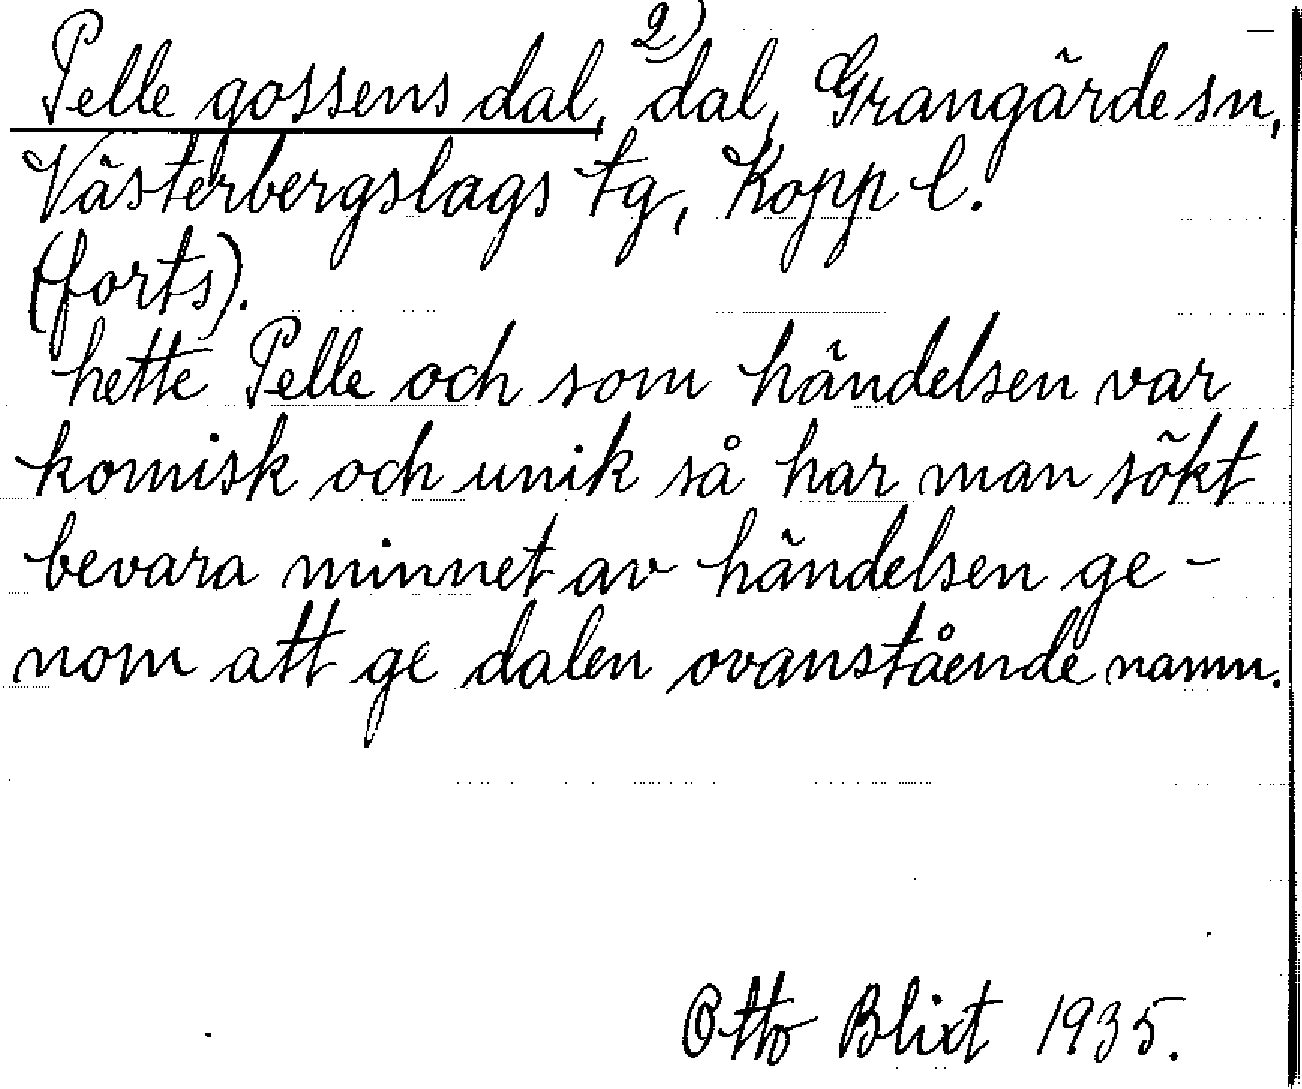 Pelle gossens dal, 2) dal, Grangärde sn,
Västerbergslags tg, Kopp l.
(forts).
hette Pelle och som händelsen var
komisk och unik så har man sökt
bevara minnet av händelsen ge-
nom att ge dalen ovanstående namn.
Otto Blixt 1935.